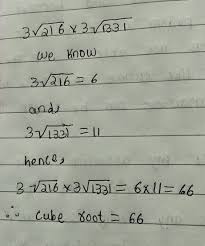 3√216 × 3√1331
we know
3√216 = 6
and,
3√1331 = 11
hence,
3√216 × 3√1331 = 6×11 = 66
∴ cube root = 66